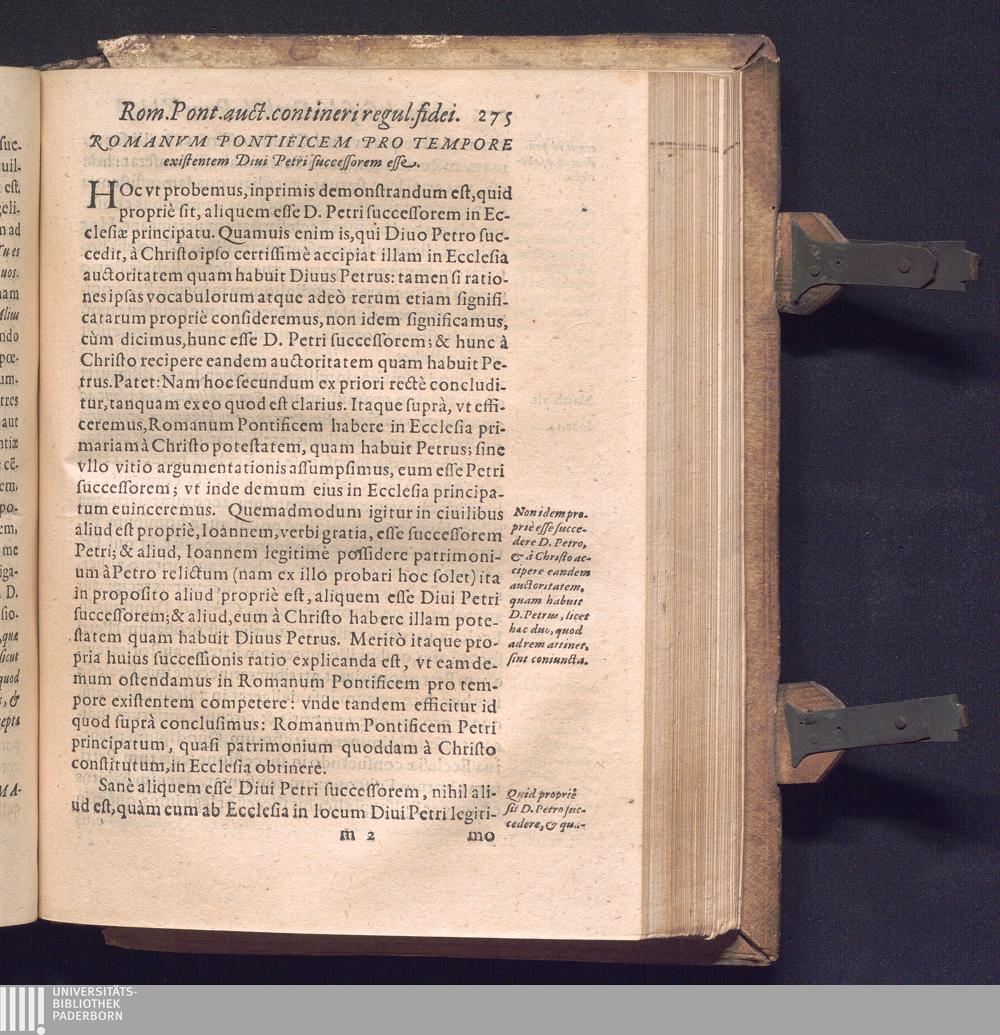 Rom.Pont.auct.contineri regul.fidei. 275
ROMANVM PONTIFICEM PRO TEMPORE
existentem Diui Petri successorem esse.
HOc vt probemus, inprimis demonstrandum est, quid
propriè sit, aliquem esse D. Petri successorem in Ec-
clesiæ principatu. Quamuis enim is, qui Diuo Petro suc-
cedit, à Christo ipso certissimè accipiat illam in Ecclesia
auctoritatem quam habuit Diuus Petrus: tamen si ratio-
nes ipsas vocabulorum atque adeò rerum etiam signifi-
catarum propriè consideremus, non idem significamus,
cùm dicimus, hunc esse D. Petri successorem; & hunc à
Christo recipere eandem auctoritatem quam habuit Pe-
trus. Patet: Nam hoc secundum ex priori rectè concludi-
tur, tanquam ex eo quod est clarius. Itaque suprà, vt effi-
ceremus, Romanum Pontificem habere in Ecclesia pri-
mariam à Christo potestatem, quam habuit Petrus; sine
vllo vitio argumentationis assumpsimus, eum esse Petri
successorem; vt inde demum eius in Ecclesia principa-
tum euinceremus. Quemadmodum igitur in ciuilibus
aliud est propriè, Ioannem, verbi gratia, esse successorem
Petri; & aliud, Ioannem legitimè possidere patrimoni-
um à Petro relictum (nam ex illo probari hoc solet) ita
in proposito aliud propriè est, aliquem esse Diui Petri
successorem; & aliud, eum à Christo habere illam pote-
statem quam habuit Diuus Petrus. Meritò itaque pro-
pria huius successionis ratio explicanda est, vt eam de-
mum ostendamus in Romanum Pontificem pro tem-
pore existentem competere: vnde tandem efficitur id
quod suprà conclusimus: Romanum Pontificem Petri
principatum, quasi patrimonium quoddam à Christo
constitutum, in Ecclesia obtinere.
Sanè aliquem esse Diui Petri successorem, nihil ali-
ud est, quàm eum ab Ecclesia in locum Diui Petri legiti-
m 2 mo
Non idem pro-
priè esse succe-
dere D. Petro,
& à Christo ac-
cipere eandem
auctoritatem,
quam habuit
D. Petrus, licet
hæc duo, quod
ad rem attinet,
sint coniuncta.
Quid propriè
sit D. Petro suc-
cedere, & qua-
UNIVERSITÄTS-
BIBLIOTHEK
PADERBORN